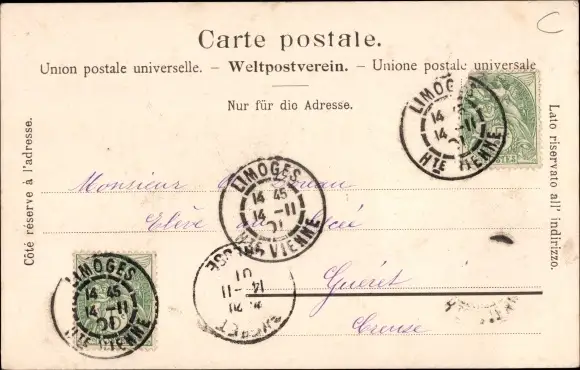 C
Carte postale.
Union postale universelle. – Weltpostverein. – Unione postale universale
Nur für dio Adresse.
Côté réserve à l'adresse.
Lato riservato all' indirizzo.
LIMOGES
14 45
14 - 11
01
HTE VIENNE
Monsieur
LIMOGES
14 45
14 - 11
01
HTE VIENNE
Elève au Lycée
LIMOGES
14 45
14 - 11
01
HTE VIENNE
14 - 11
01
Guéret
Creuse